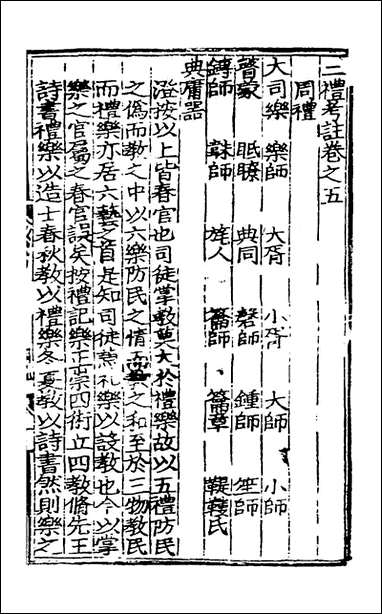 三禮考註卷之五
周禮
大司樂 樂師 大胥 小胥 大師 小師
瞽矇 眡瞭 典同 磬師 鍾師 笙師
鎛師 韎師 旄人 籥師 籥章 鞮鞻氏
典庸器
澄按以上皆春官也司徒掌敎莫大於禮樂故以五禮防民
之僞而敎之中以六樂防民之情而敎之和至於三物敎民
而禮樂亦居六藝之首是知司徒兼礼樂以設敎也今以掌
樂之官屬之春官誤矣按禮記樂正崇四術立四敎脩先王
詩書禮樂以造士春秋敎以禮樂冬夏敎以詩書然則樂之